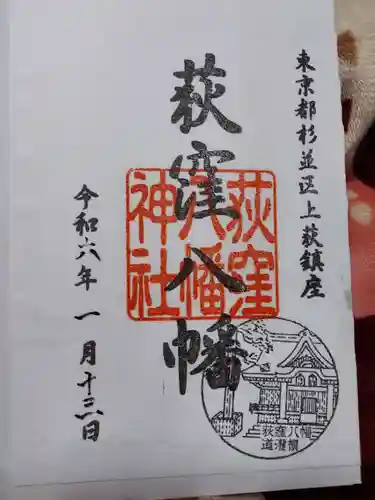 東京都杉並区上荻鎮座
荻窪八幡
荻窪
八幡
神社
令和六年 一月十三日
荻窪八幡
道灌槇